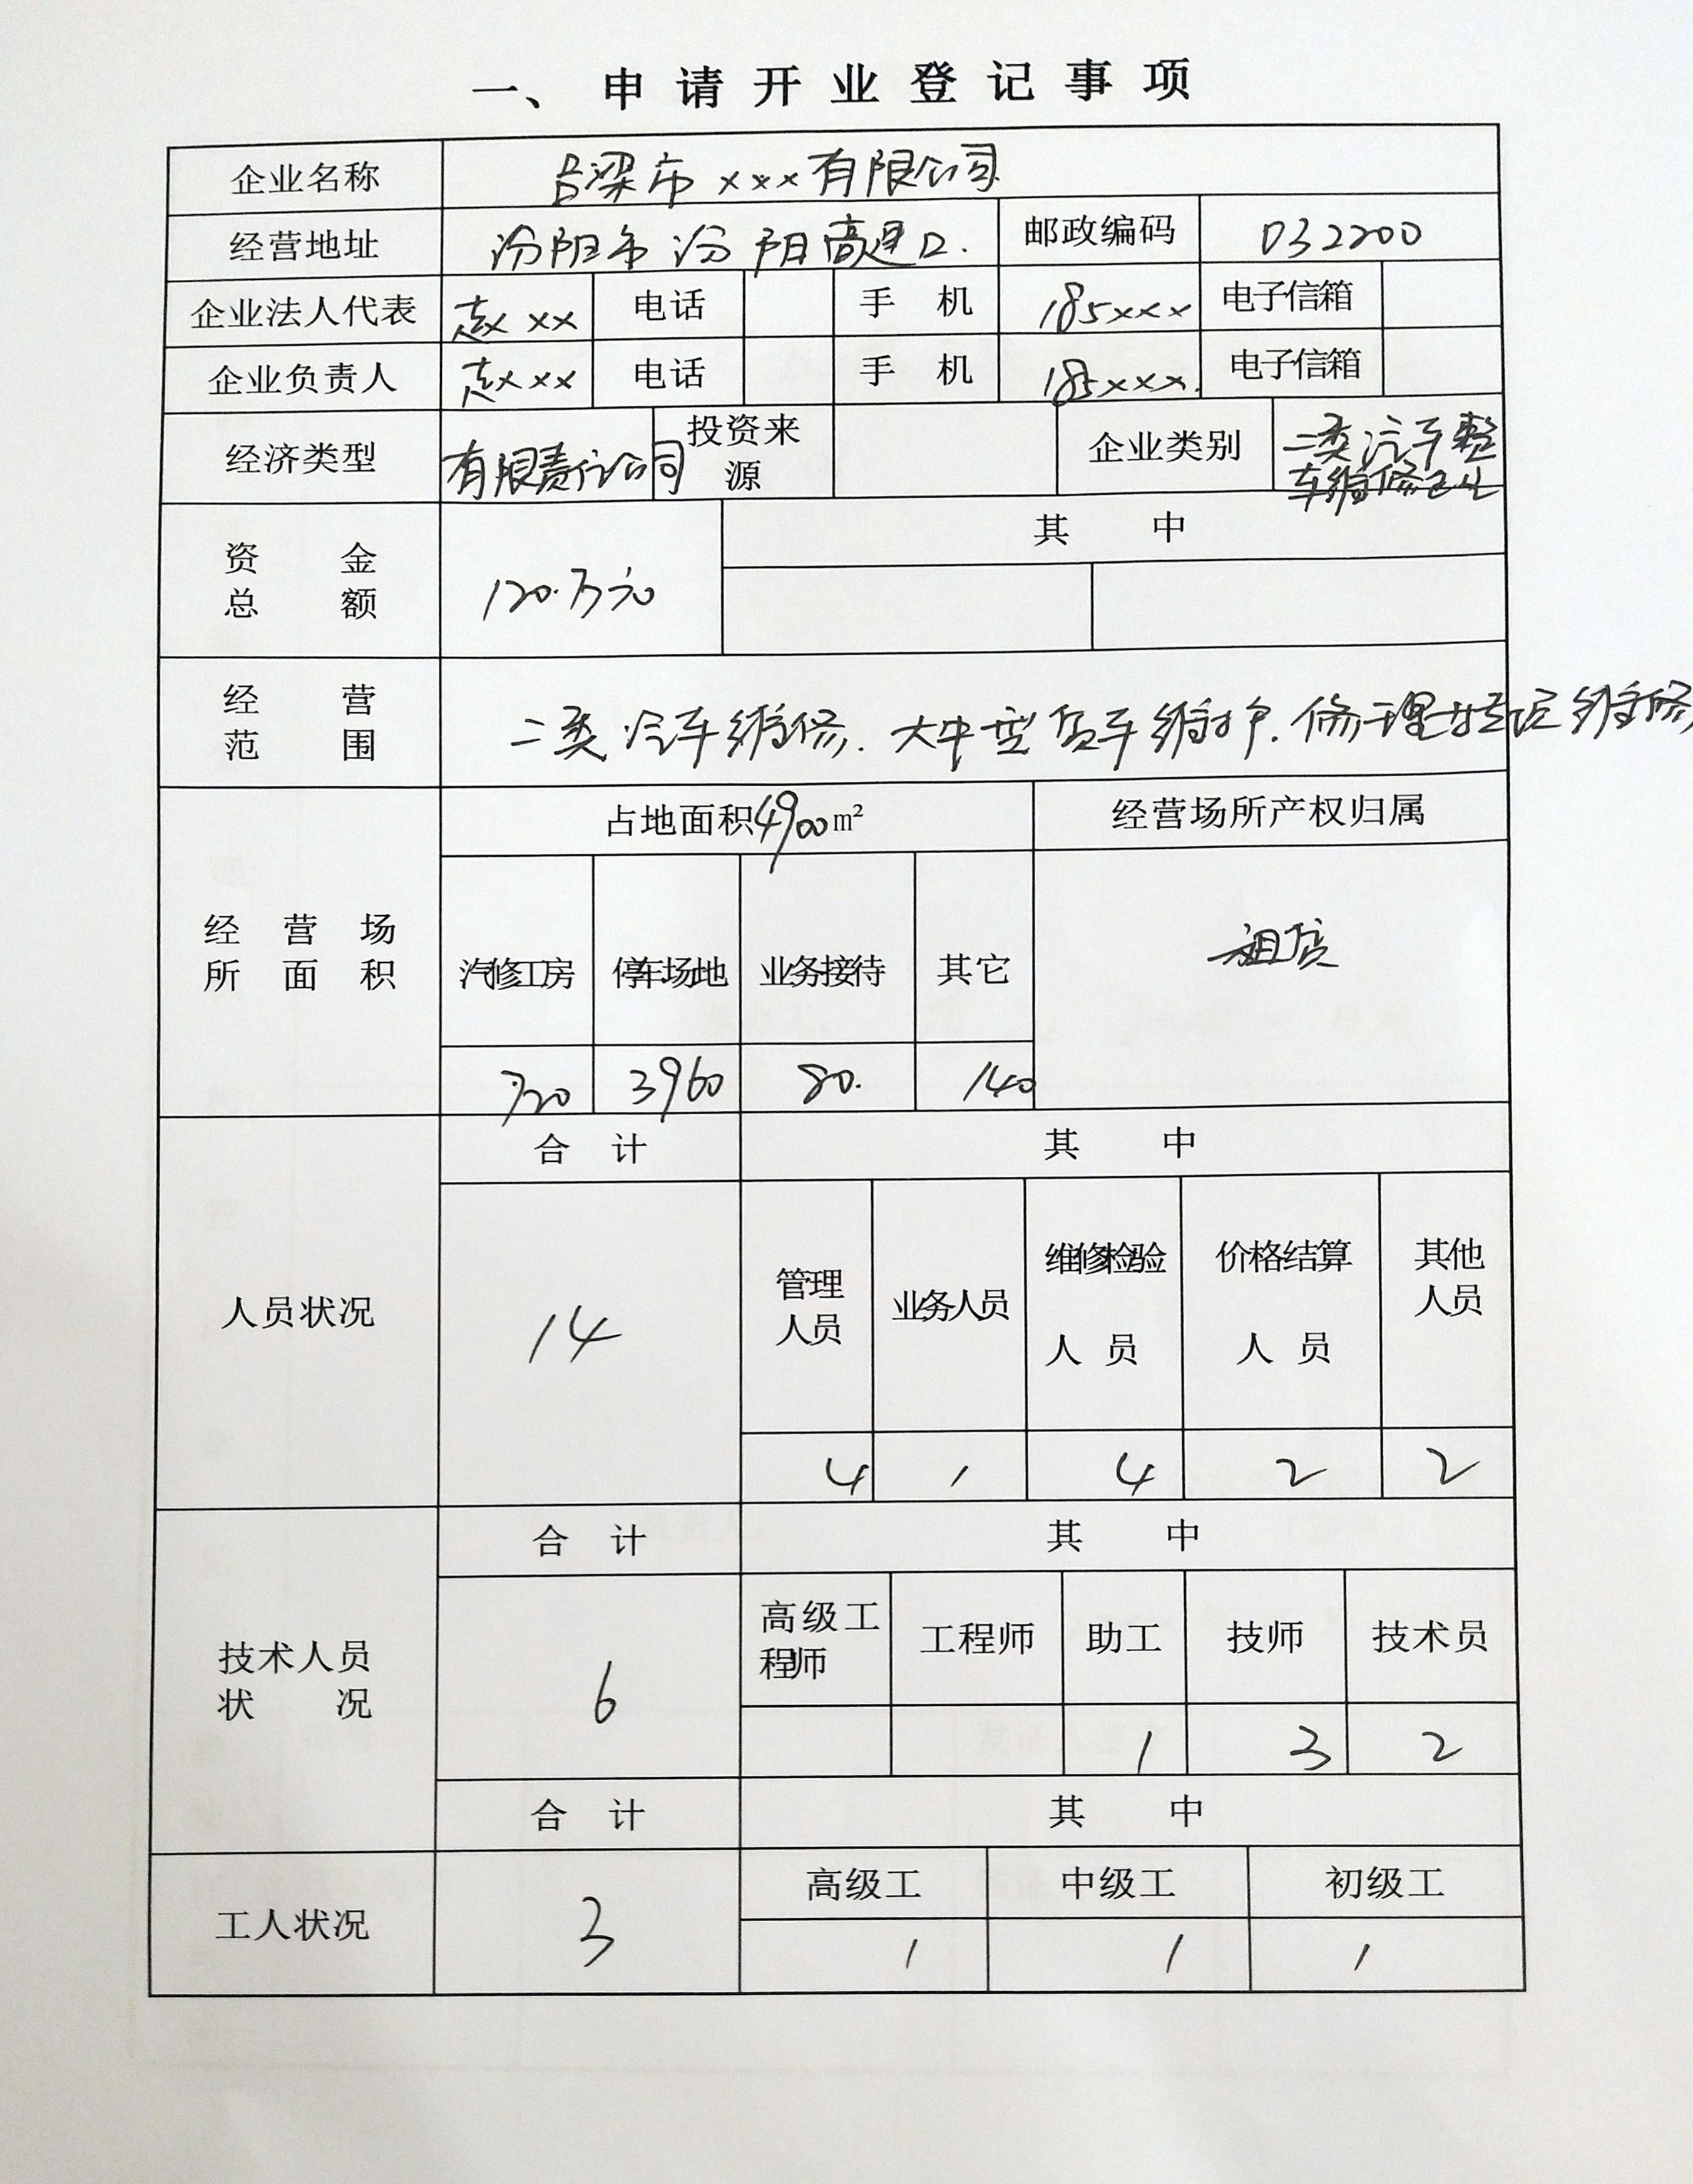 一、申请开业登记事项
企业名称 吕梁市xxx有限公司
经营地址 汾阳市汾阳高速口. 邮政编码 032200
企业法人代表 赵xxx 电话 手机 185xxx 电子信箱
企业负责人 赵xxx 电话 手机 185xxx. 电子信箱
经济类型 有限责任公司 投资来 企业类别 二类汽车整
源 车维修企业
资金 其中
总额 120.万元
经营
范围 二类汽车维修.大中型货车维护.修理 维修
占地面积4900m² 经营场所产权归属
经营场
所面积 汽修工房 停车场地 业务接待 其它 租赁
720 3960 80. 140
合计 其中
人员状况 14 管理 业务人员 维修检验 价格结算 其他
人员 人员 人员 人员
4 1 4 2 2
合计 其中
技术人员 6 高级工 工程师 助工 技师 技术员
状况 程师
1 3 2
合计 其中
工人状况 3 高级工 中级工 初级工
1 1 1